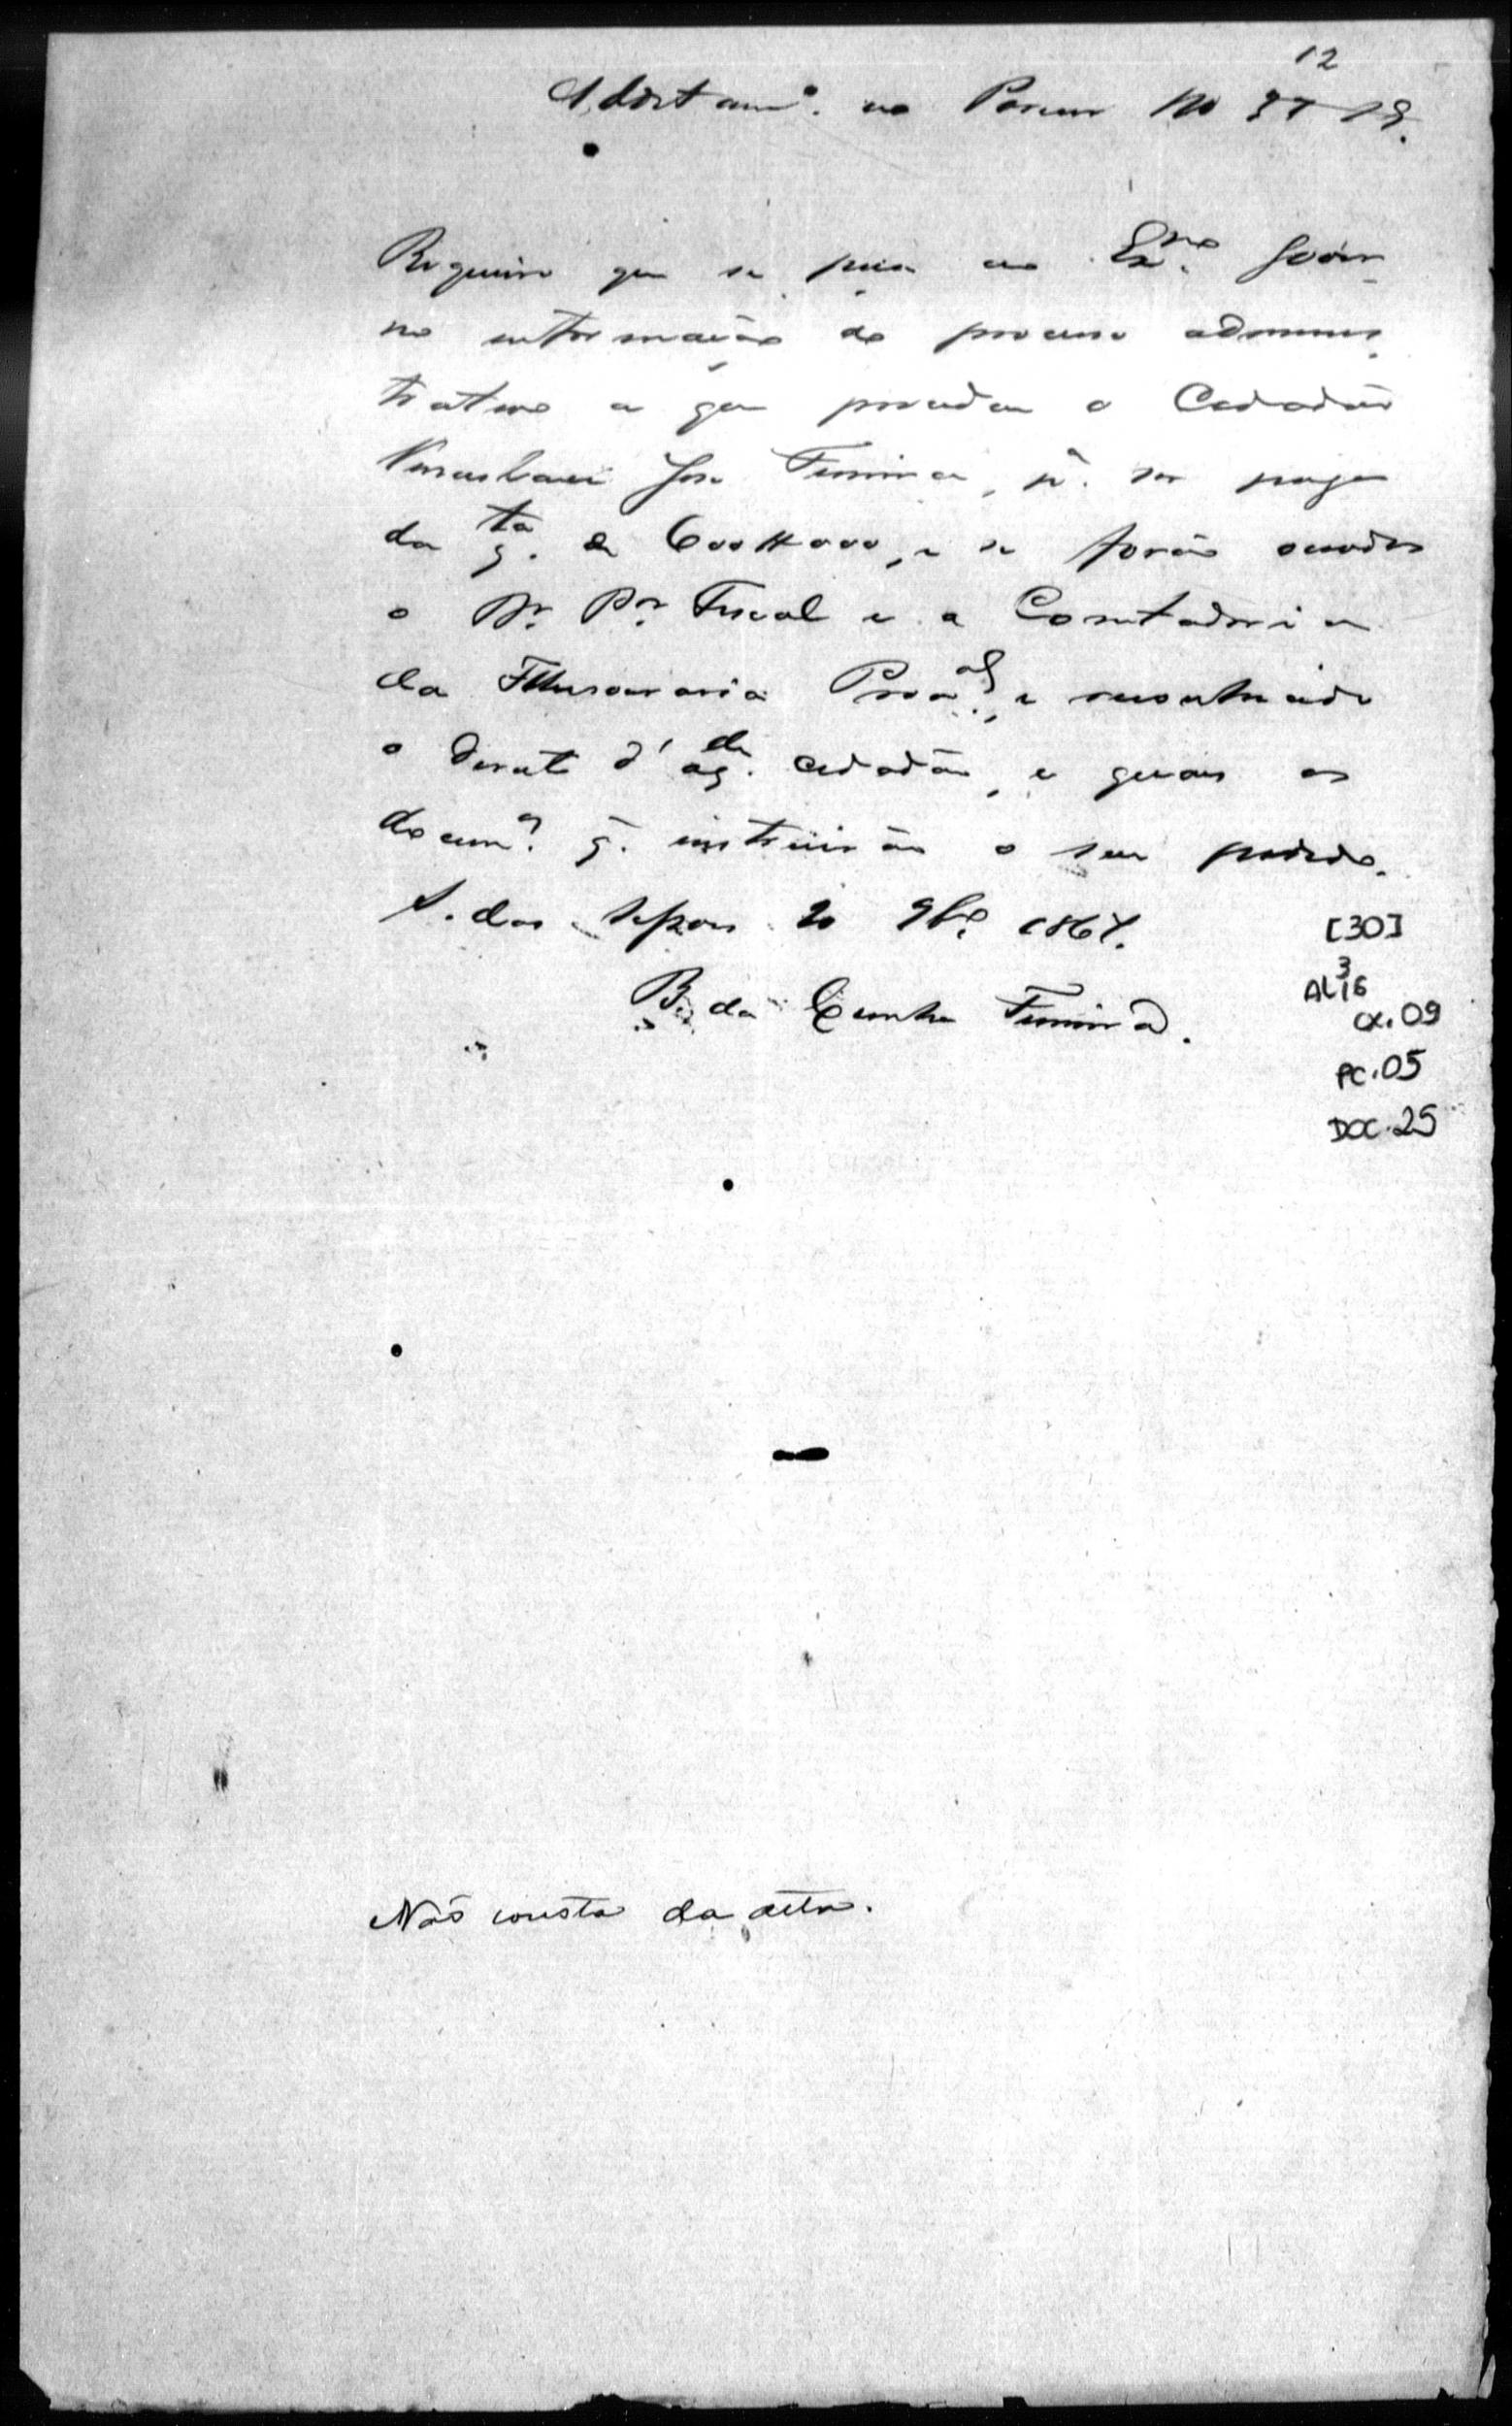 12
Additam.º ao Parecer Nº
Requeiro que se pessa ao Ex.mo Gover
no informação do processo adminis
trativo a que procedeu o Cidadão
José Ferreira, p.ª ser pago
da q.ta de 600#000, e se forão ouvidos
o Dr. P.or Fiscal e a Contadoria
da Thesouraria Prov.al, e reconhecido
o direito d'aq.le cidadão, e quaes os
docum.os q. instruirão o seu pedido.
S. das Sessões 20 9br.º 1867.
B. da Cunha Ferreira.
[30]
3
AL16
cx.09
PC.05
DOC.25
Não consta da acta.